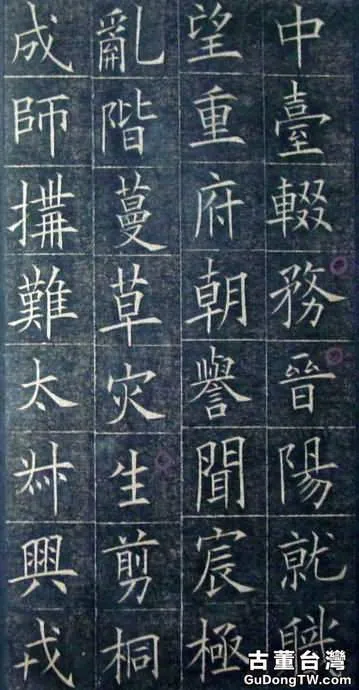 中臺輟務晉陽就職
望重府朝譽聞宸極
亂階蔓草灾生剪桐
成師搆難太叔興戎
古董台灣
GuDongTW.com